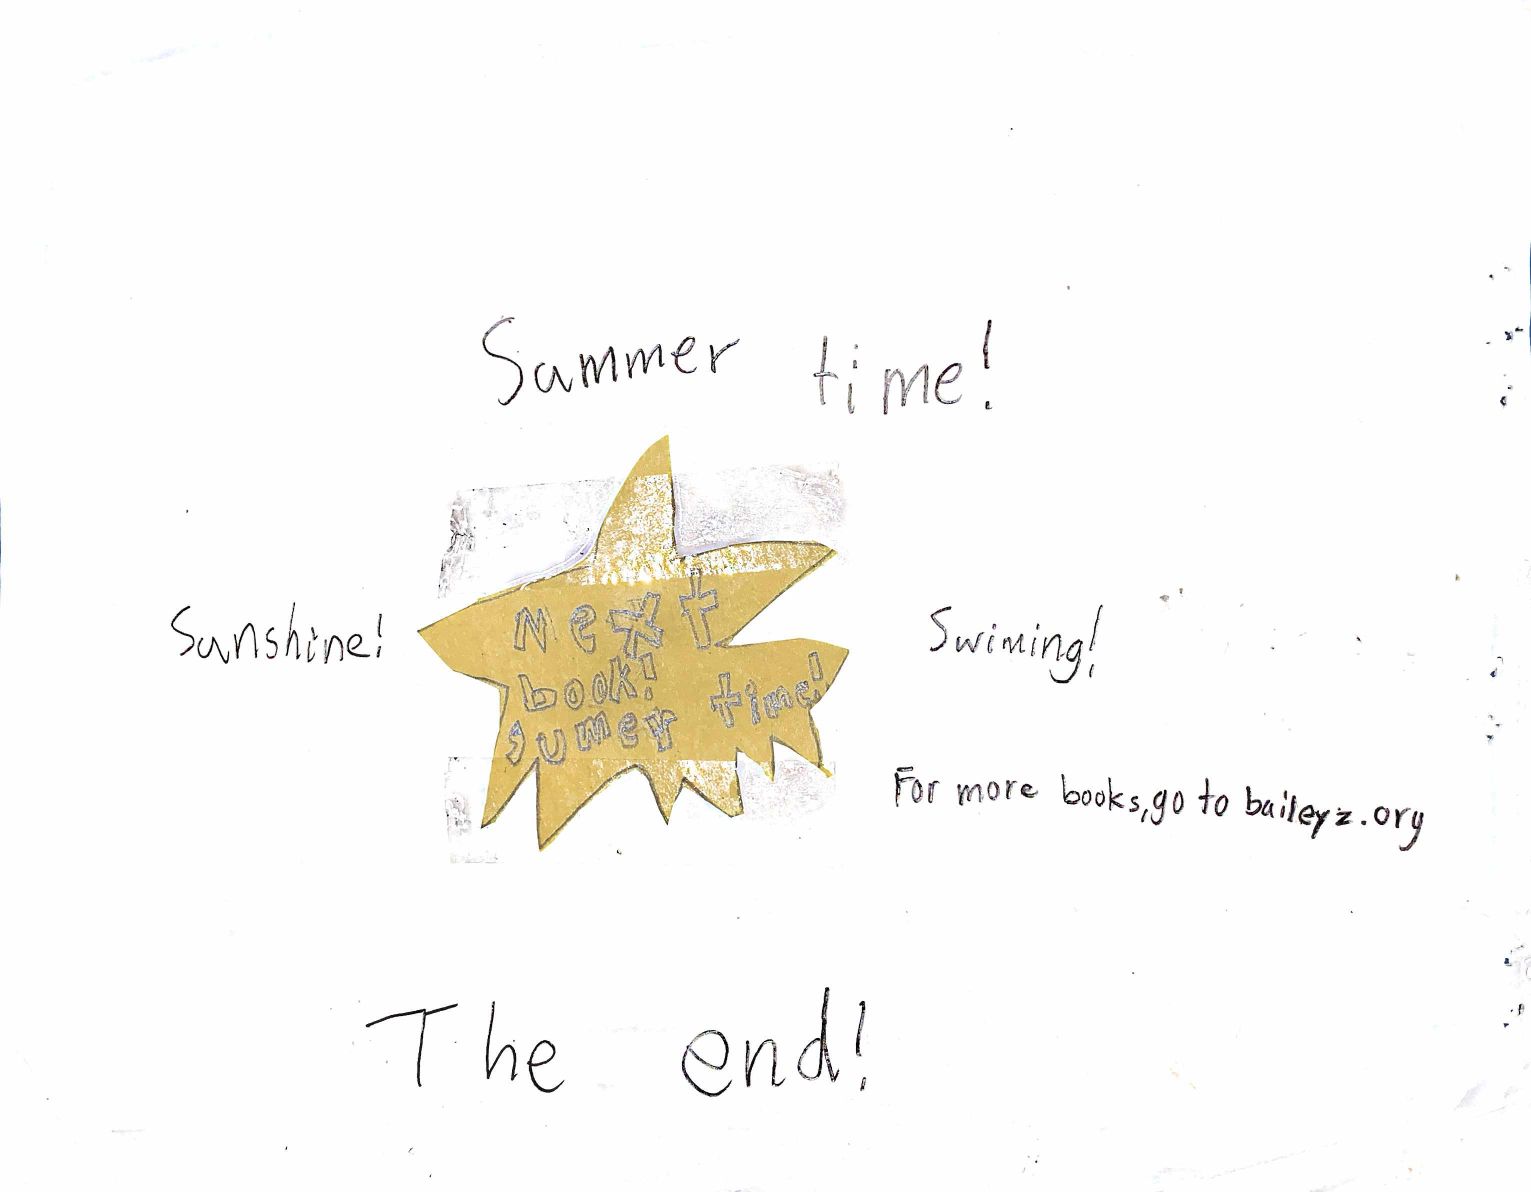 Summer time!
Sunshine!
Next
book!
sumer time!
Swiming!
For more books, go to baileyz.org
The end!